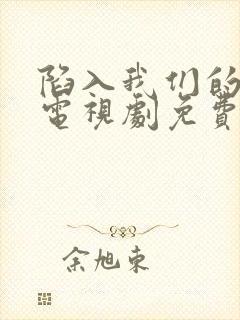 陷入我们的
電視劇免費
余旭东